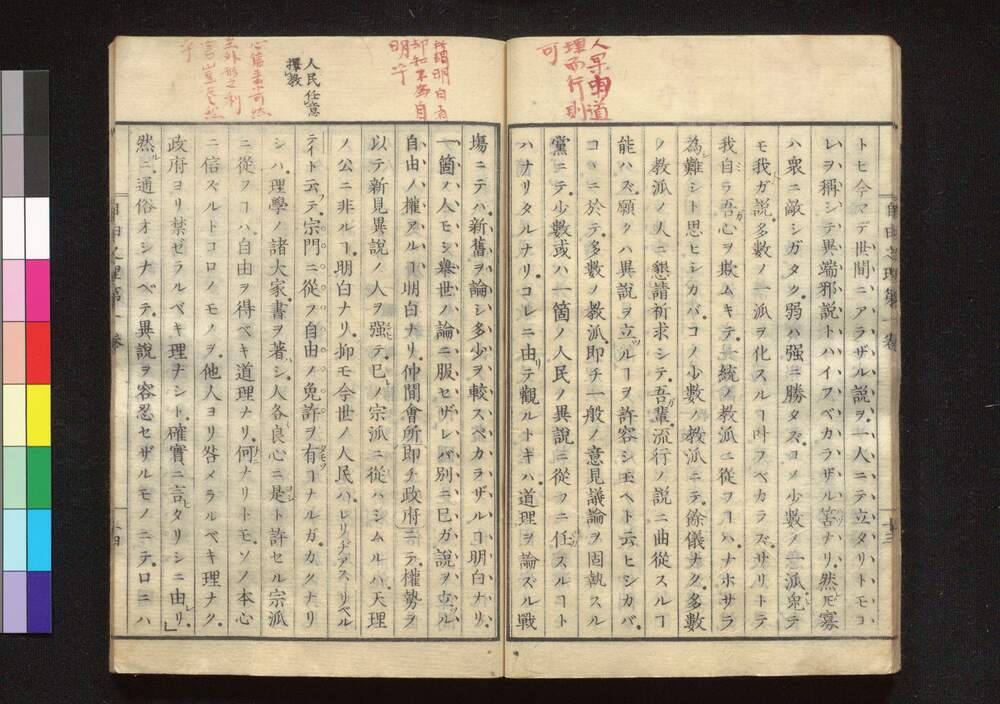 人果由道
理而行則
可
トヒ今マデ世間ニアラザル説ヲ、一人ニテ立タリトモコ
レヲ稱シテ異端邪説トハイフベカラザル筈ナリ。然ルニ寡
ハ衆ニ敵シガタク。弱ハ强ニ勝タズ。コノ少數ノ一派兎テ
モ我ガ説。多數ノ一派ヲ化スルヿ叶フベカラズ。サリトテ
我自ラ吾心ヲ欺ムキテ。大統ノ教派ニ從フヿハナホサラ
為難シト思ヒシカバコノ少數ノ教派ニテ。餘儀ナク。多數
ノ教派ノ人ニ懇請祈求シテ。吾輩流行ノ説ニ曲從スルヿ
能ハズ。願クハ異説ヲ立ツルヿヲ許容シ玉ヘト云ヒシカバ。
コヽニ於テ。多數ノ教派。即チ一般ノ意見議論ヲ固執スル
黨ニテ。少數或ハ一箇ノ人民ノ異説ニ從フニ任スルヿト
ハナリタルナリ。コレニ由テ觀ルトキハ。道理ヲ論ズル戰
自由之理第一卷
十三
所謂明白者
却知不為自
明乎
人民任意
擇教
塲ニテハ。新舊ヲ論シ多少ヲ較スベカラザルヿ明白ナリ。
一箇ノ人モシ擧世ノ論ニ服セザレバ別ニ已ガ説ヲ立ツル
自由ノ權アルヿ明白ナリ。仲間會所即チ政府ニテ。權勢ヲ
以テ新見異説ノ人ヲ强テ。已ノ宗派ニ從ハシムルハ。天理
ノ公ニ非ルヿ。明白ナリ。抑モ今世ノ人民ハ。レリヂアス リベル
テイト云テ。宗門ニ從フ自由ノ免許ヲ有ツヿナルガ。カクナリ
シハ。理學ノ諸大家。書ヲ著シ。人各良心ニ是ト許セル宗派
ニ從フヿハ。自由ヲ得ベキ道理ナリ。何ナリトモ。ソノ本心
ニ信ズルトコロノモノヲ。他人ヨリ咎メラルベキ理ナク。
政府ヨリ禁ゼラルベキ理ナシト。確實ニ言ヒタリシニ由レリ」
然ルニ。通俗オシナベテ。異説ヲ容忍セザルモノニテ。口ニハ
自由之理第一卷
十四